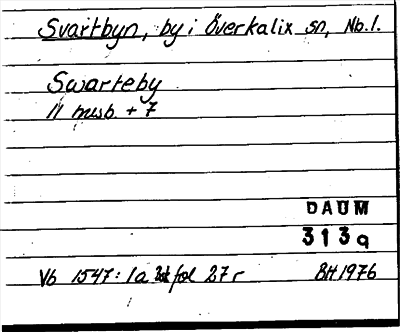 Svartbyn, by i Överkalix sn, Nb.l.
Swarteby
11 husb. + 7
DAUM
313q
Vb 1547: 1a fol 27r BH 1976